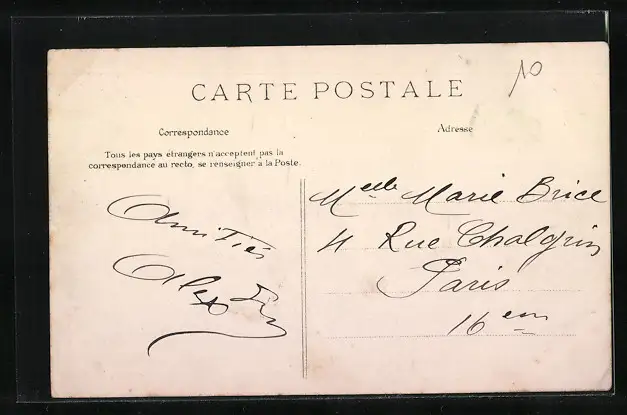 CARTE POSTALE
10
Correspondance
Adresse
Tous les pays étrangers n'acceptent pas la
correspondance au recto, se renseigner à la Poste.
Amitiés
Alex
Melle Marie Brice
4 Rue Chalgrin
Paris
16 em